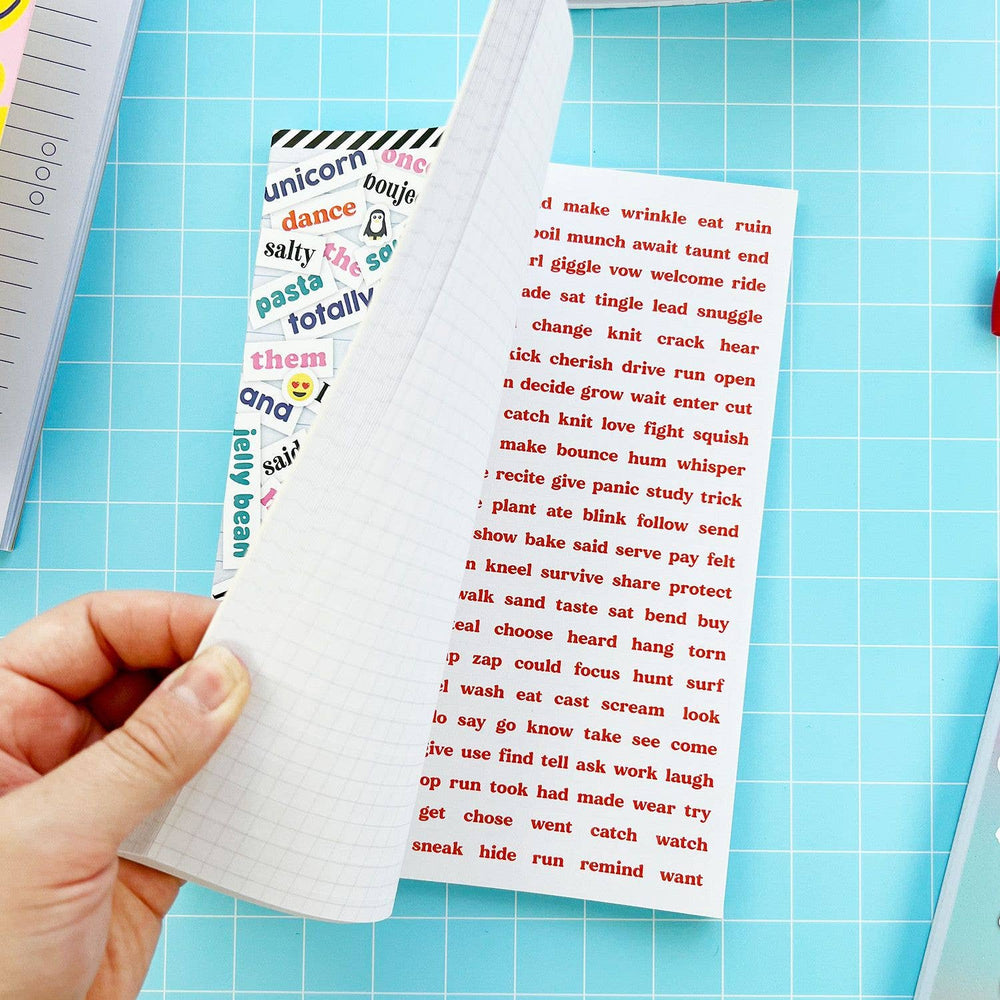 unicorn
once
bouje
dance
salty
the
pasta
totally
them
and
said
jelly bean
make wrinkle eat ruin
munch await taunt end
giggle vow welcome ride
sat tingle lead snuggle
change knit crack hear
kick cherish drive run open
decide grow wait enter cut
catch knit love fight squish
make bounce hum whisper
recite give panic study trick
plant ate blink follow send
show bake said serve pay felt
kneel survive share protect
walk sand taste sat bend buy
choose heard hang torn
zap could focus hunt surf
wash eat cast scream look
do say go know take see come
give use find tell ask work laugh
run took had made wear try
get chose went catch watch
sneak hide run remind want